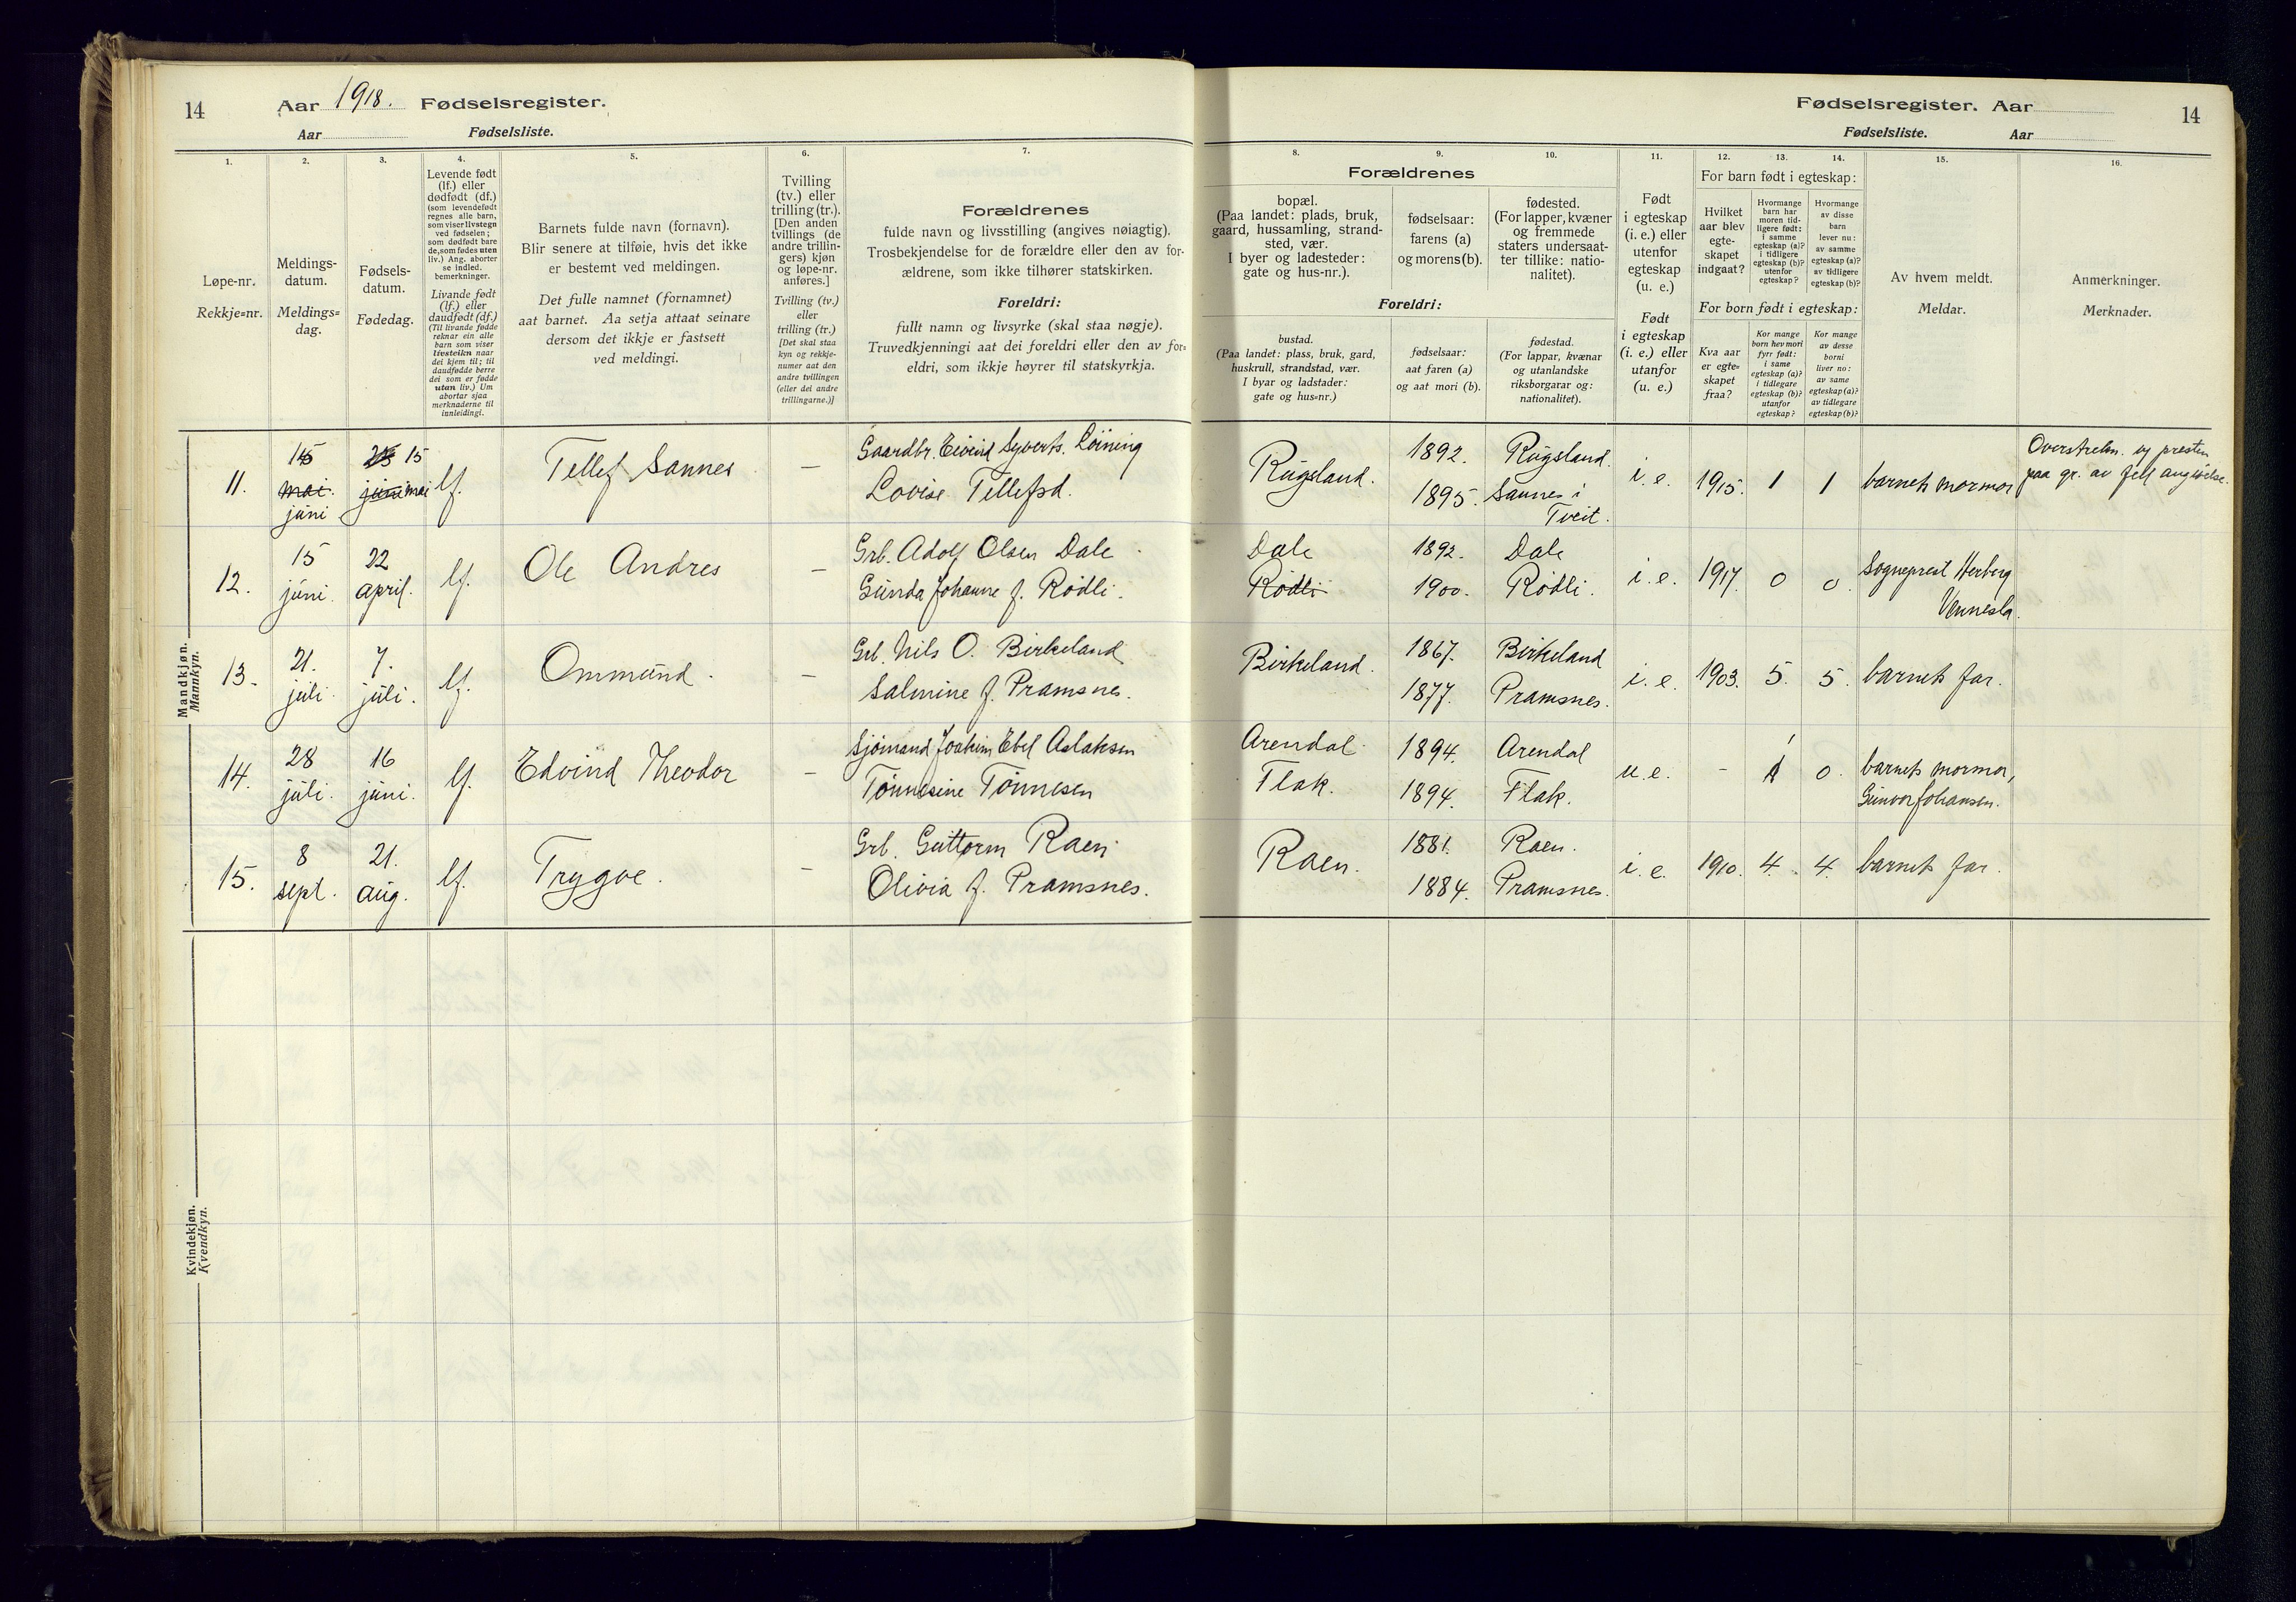 14 Aar 1918. Fødselsregister.
Aar Fødselsliste.
Fødselsregister. Aar 14
Fødselsliste. Aar
1. 2. 3. 4. 5. 6. 7. 8. 9. 10. 11. 12. 13. 14. 15. 16.
Løpe-nr.
Rekkje=nr.
Meldings-
datum.
Meldings=
dag.
Fødsels-
datum.
Fødedag.
Levende født
(lf.) eller
dødfødt (df.)
(som levendefødt
regnes alle barn,
som viser livstegn
ved fødselen;
som dødfødt bare
de, som fødes uten
liv.) Ang. aborter
se indled.
bemerkninger.
Livande født
(lf.) eller
daudfødt (df.)
(Til livande fødde
reknar ein alle
barn som viser
livsteikn naar
dei kjem til; til
daudfødde berre
dei som er fødde
utan liv.) Um
abortar sjaa
merknaderne til
innleidingi.
Barnets fulde navn (fornavn).
Blir senere at tilføie, hvis det ikke
er bestemt ved meldingen.
Det fulle namnet (fornamnet)
aat barnet. Aa setja attaat seinare
dersom det ikkje er fastsett
ved meldingi.
Tvilling
(tv.) eller
trilling (tr.).
[Den anden
tvillings (de
andre trillin-
gers) kjøn
og løpe-nr.
anføres.]
Tvilling (tv.)
eller
trilling (tr.)
[Det skal staa
kyn og rekkje-
numer aat den
andre tvillingen
(eller dei andre
trillingarne.)]
Forældrenes
fulde navn og livsstilling (angives nøiagtig).
Trosbekjendelse for de forældre eller den av for-
ældrene, som ikke tilhører statskirken.
Foreldri:
fullt namn og livsyrke (skal staa nøgje).
Truvedkjenningi aat dei foreldri eller den av for=
eldri, som ikkje høyrer til statskyrkja.
Forældrenes
bopæl.
(Paa landet: plads, bruk,
gaard, hussamling, strand-
sted, vær.
I byer og ladesteder:
gate og hus-nr.).
fødselsaar:
farens (a)
og morens (b).
fødested.
(For lapper, kvæner
og fremmede
staters undersaat-
ter tillike: natio-
nalitet).
Foreldri:
bustad.
(Paa landet: plass, bruk, gard,
huskrull, strandstad, vær.
I byar og ladstader:
gate og hus=nr.)
fødselsaar:
aat faren (a)
og aat mori (b).
fødestad.
(For lappar, kvænar
og utanlandske
riksborgarar og:
nationalitet).
Født
i egteskap
(i. e.) eller
utenfor
egteskap
(u. e.)
Født
i egteskap
(i. e.) eller
utanfor
(u. e.)
For barn født i egteskap:
Hvilket
aar blev
egte-
skapet
indgaat?
Hvormange
barn har
moren tid-
ligere født:
i samme
egteskap (a)?
i tidligere
egteskap (b)?
utenfor
egteskap?
Hvormange
av disse
barn
lever nu:
av samme
egteskap (a)?
av tidligere
egteskap (b)?
For born født i egteskap:
Kva aar
er egte=
skapet
fraa?
Kor mange
born hev mori
fyrr født:
i same
egteskap (a)?
i tidlegare
egteskap (b)?
utanfor
egteskap?
Kor mange
av desse
borni
liver no:
av same
egteskap (a)?
av tidlegare
egteskap (b)?
Av hvem meldt.
Meldar.
Anmerkninger.
Merknader.
Mandkjøn.
Mannkyn.
11. 15 mai juni 15 juni mai lf. Tellef Sannes – Gaardbr. Eivind Syverts. Løining
Lovise Tellefsd.
Rugsland. 1892. Rugsland.
1895. Sannes i
Tveit.
i. e. 1915. 1 1 barnets mormor
Overstrekn. og presten
paa gr. av feil angivelse.
12. 15 juni. 22 april. lf. Ole Andres – Grb. Adolf Olsen Dale
Gunda Johanne f. Rødli.
Dale 1892. Dale
Rødli 1900. Rødli.
i. e. 1917. 0 0. Sogneprest Herberg
Vennesla.
13. 21. juli. 7. juli. lf. Ommund. – Grb. Nils O. Birkeland
Salmine f. Pramsnes.
Birkeland. 1867. Birkeland
1877. Pramsnes.
i. e. 1903. 5. 5. barnets far.
14. 28 juli. 16 juni. lf. Edvind Theodor – Sjømand Joakim Ebel Aslaksen
Tønnesine Tønnesen
Arendal 1894. Arendal
Flak. 1894. Flak.
u. e. – 1 0. barnets mormor,
Gunvor Johansen.
15. 8 sept. 21. aug. lf. Trygve. – Grb. Guttorm Raen
Olivia f. Pramsnes.
Raen. 1881. Raen.
1884. Pramsnes.
i. e. 1910. 4. 4. barnets far.
Kvindekjøn.
Kvendkyn.